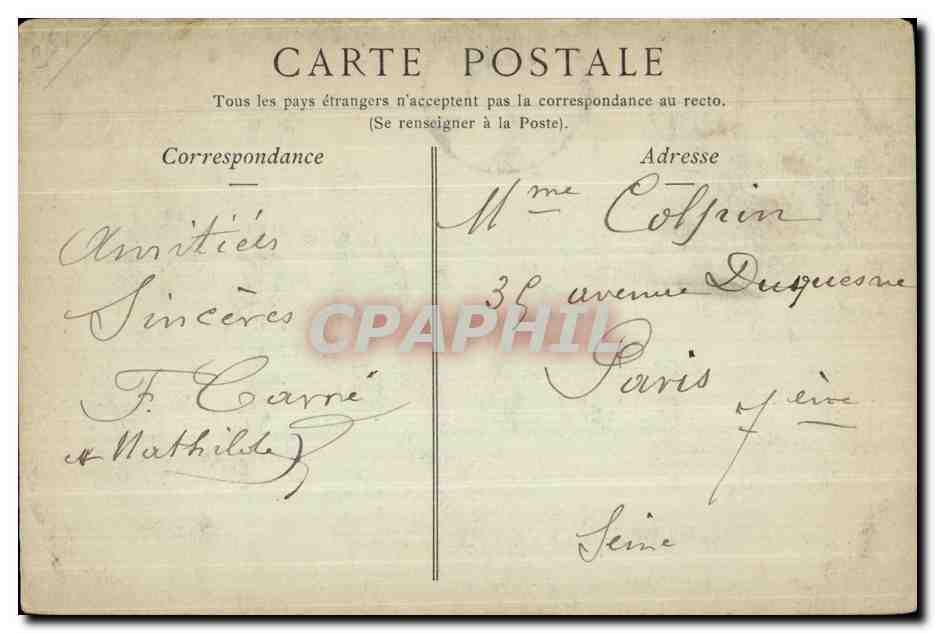 CARTE POSTALE
Tous les pays étrangers n'acceptent pas la correspondance au recto.
(Se renseigner à la Poste).
Correspondance
Amitiés
Sincères
F. Carré
et Mathilde
Adresse
Mme
35 avenue Duquesne
Paris
7ème
Seine
CPAPHIL